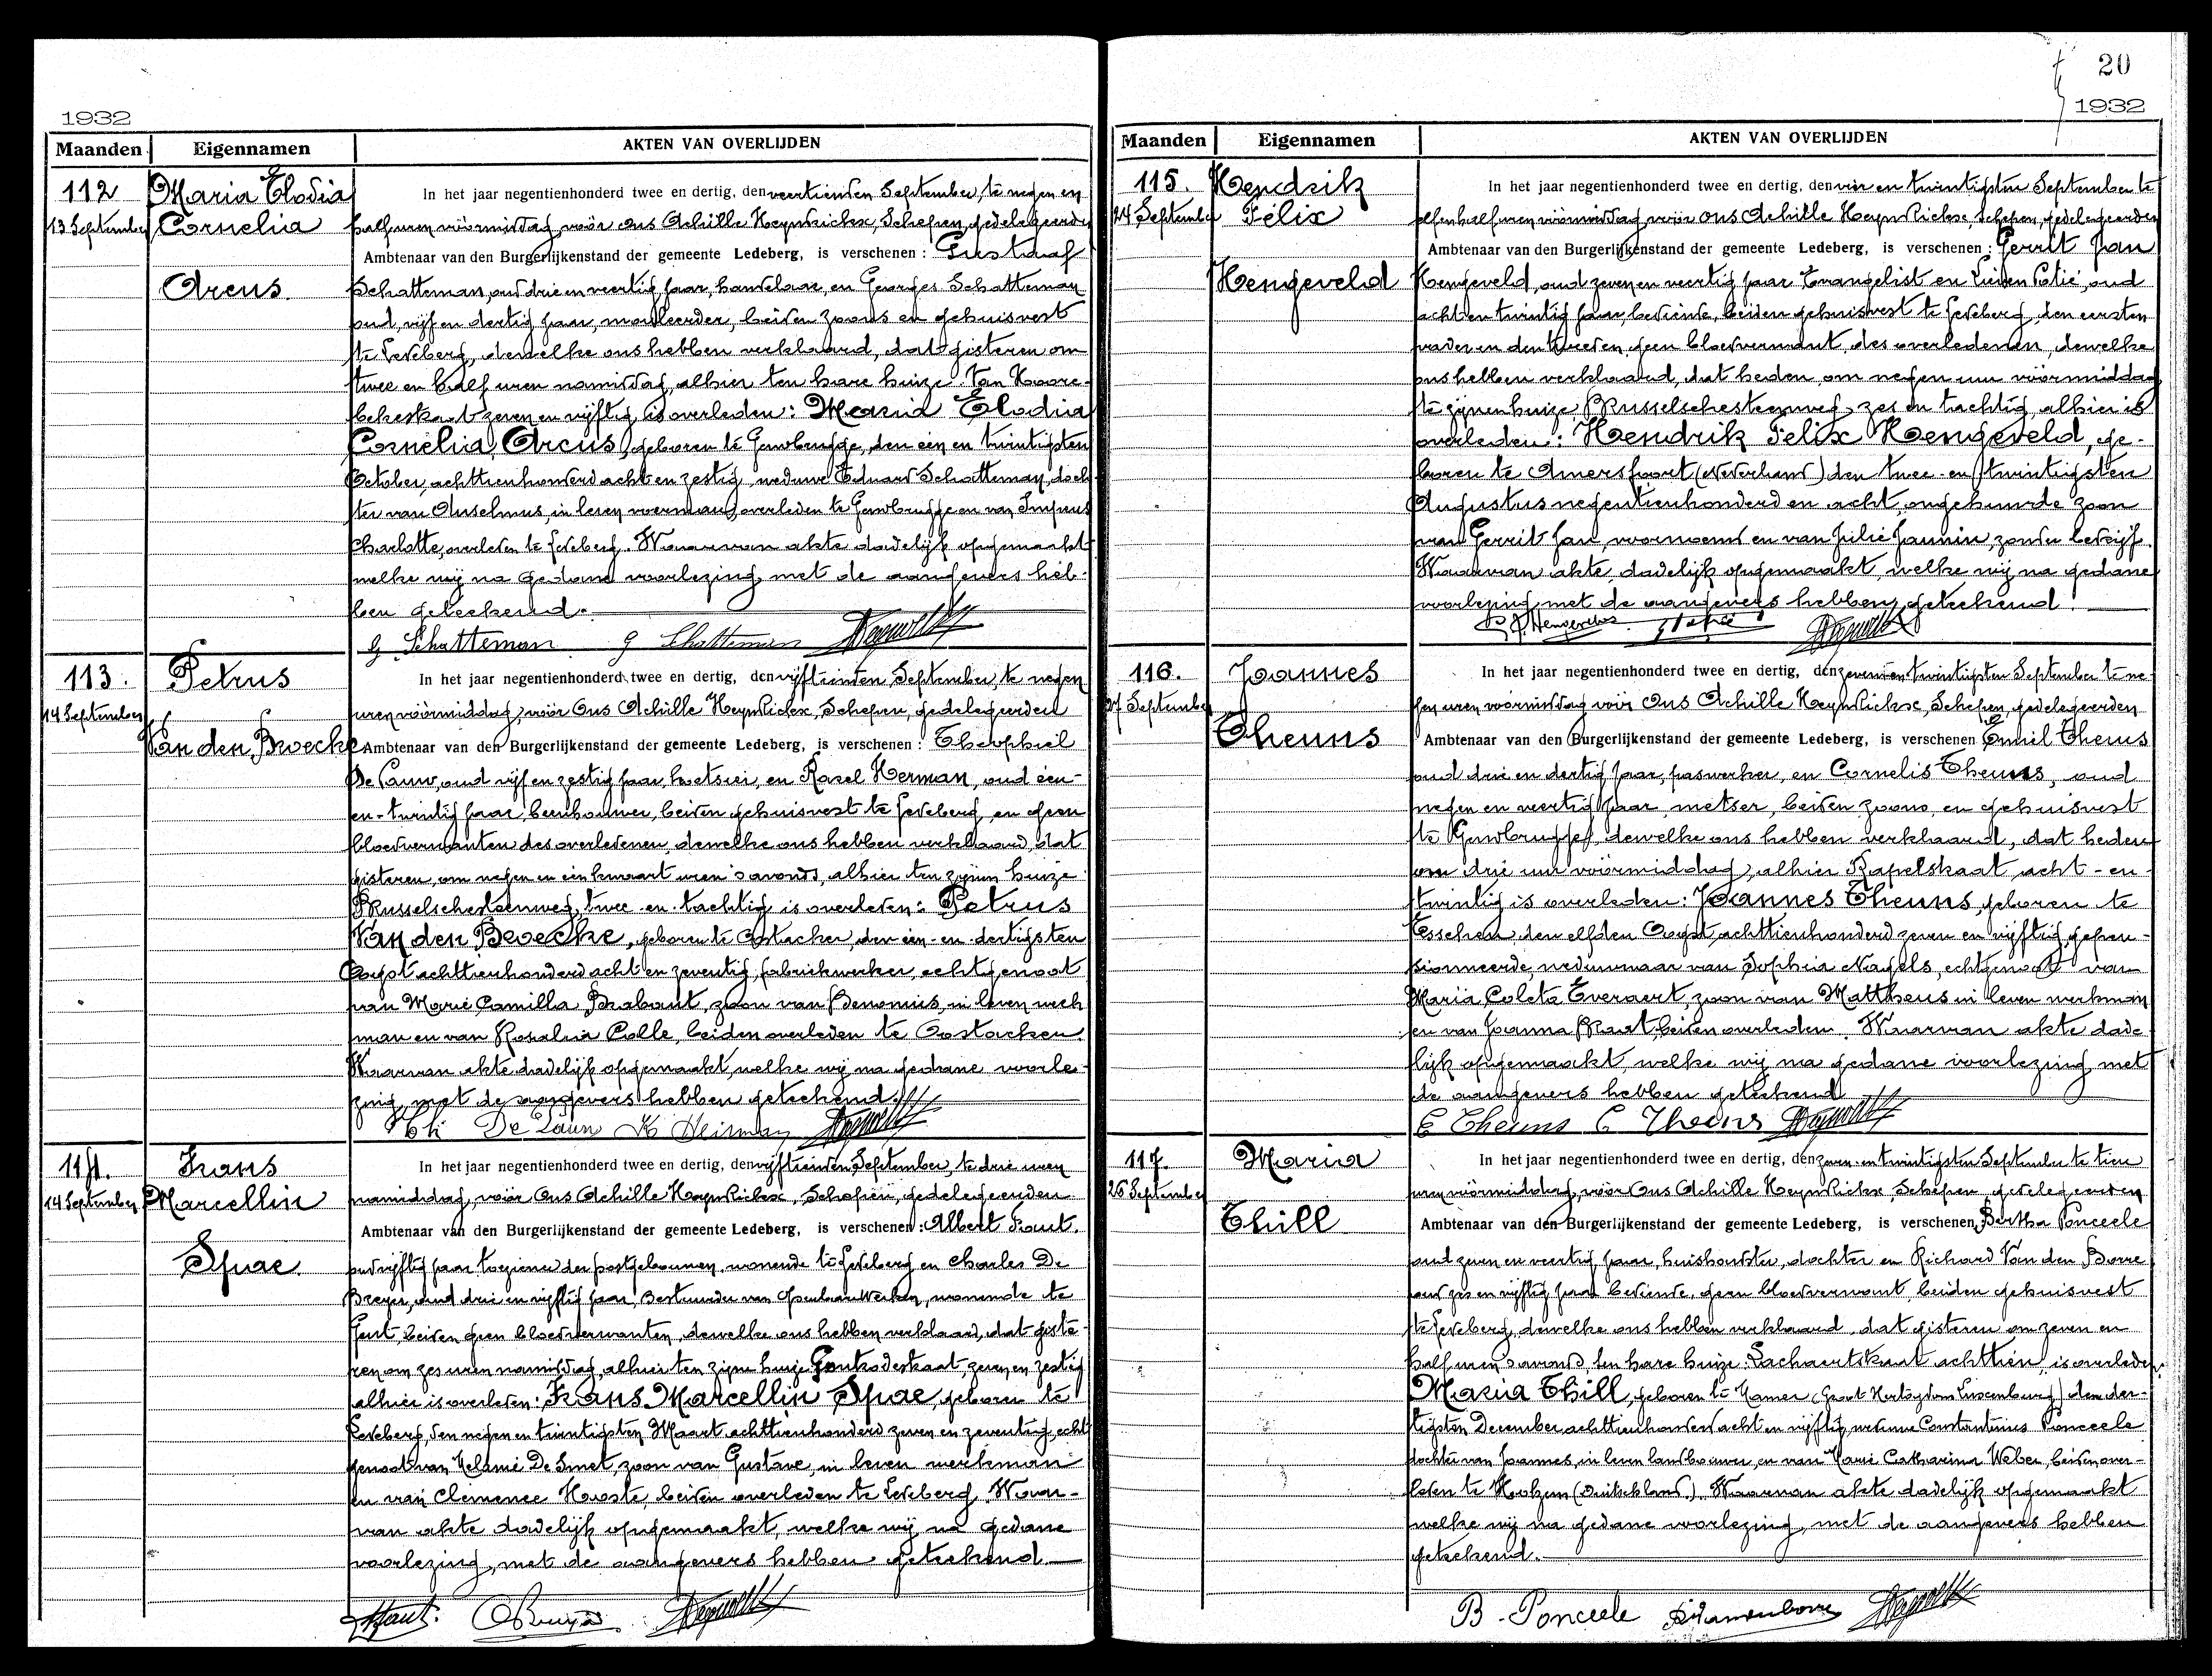 1932
Maanden Eigennamen AKTEN VAN OVERLIJDEN
112 Maria Elodia
13 September Cornelia
Arcus.
In het jaar negentienhonderd twee en dertig, den veertienden September, te negen en
half uren vóórmiddag, vóór ons Achille Heynderickx, Schepen, gedelegeerden
Ambtenaar van den Burgerlijkenstand der gemeente Ledeberg, is verschenen: Gustaaf
Schatteman, oud drie en veertig jaar, handelaar, en Georges Schatteman
oud vijf en dertig jaar, mouleerder, beiden zoons en gehuisvest
te Ledeberg, dewelke ons hebben verklaard, dat gisteren om
twee en half uren namiddag, alhier ten hare huize
zeven en vijftig is overleden: Maria Elodia
Cornelia Arcus, geboren te Gendbrugge, den een en twintigsten
October, achttienhonderd acht en zestig, weduwe Eduard Schatteman, doch
ter van Anselmus, in leven overleden te Gendbrugge en van
Charlotte, overleden te Ledeberg. Waarvan akte dadelijk opgemaakt
welke wij na gedane voorlezing met de aangevers heb-
ben geteekend.
G. Schatteman G Schatteman
113. Petrus
14 September
Van den Broecke
In het jaar negentienhonderd twee en dertig, den vijftienden September, te negen
uren vóórmiddag, vóór Ons Achille Heynderickx, Schepen, gedelegeerden
Ambtenaar van den Burgerlijkenstand der gemeente Ledeberg, is verschenen: Theophiel
De Pauw, oud vijf en zestig jaar, en Karel Herman, oud een-
en-twintig jaar, beenhouwer, beiden gehuisvest te Ledeberg, en geen
bloedverwanten des overledenen, dewelke ons hebben verklaard, dat
gisteren, om negen en een kwaart uren 's avonds, alhier ten zijnen huize
Brusselschesteenweg, twee-en-tachtig is overleden: Petrus
Van den Broecke, geboren te Oostacker, den een-en-dertigsten
Oogst achttienhonderd acht en zeventig, fabriekwerker, echtgenoot
van Marie Camilla Brabant, zoon van in leven werk
man en van Rosalia Colle, beiden overleden te Oostacker.
Waarvan akte dadelijk opgemaakt, welke wij na gedane voorle-
zing, met de aangevers hebben geteekend.
114. Frans
14 September Marcellin
Spae.
In het jaar negentienhonderd twee en dertig, den vijftienden September, te drie uren
namiddag, vóór Ons Achille Heynderickx, Schepen, gedelegeerden
Ambtenaar van den Burgerlijkenstand der gemeente Ledeberg, is verschenen: Albert
oud vijftig jaar der postgebouwen, wonende te Ledeberg en Charles De
oud drie en vijftig jaar, Bestuurder van Openbare Werken, wonende te
Gent, beiden geen bloedverwanten, dewelke ons hebben verklaard, dat giste-
ren om zes uren namiddag, alhier ten zijne huize zeven en zestig
alhier is overleden: Frans Marcellin Spae, geboren te
Ledeberg, den negen en twintigsten Maart achttienhonderd zeven en zeventig, echt
genoot van Melanie De Smet, zoon van Gustave, in leven werkman
en van Clemence beiden overleden te Ledeberg. Waar-
van akte dadelijk opgemaakt, welke wij na gedane
voorlezing, met de aangevers hebben geteekend
20
1932
Maanden Eigennamen AKTEN VAN OVERLIJDEN
115. Hendrik
24 September Félix
Hengeveld
In het jaar negentienhonderd twee en dertig, den vier en twintigsten September te
elfenhalf uren vóórmiddag, vóór ons Achille Heynderickx, Schepen, gedelegeerden
Ambtenaar van den Burgerlijkenstand der gemeente Ledeberg, is verschenen: Gerrit Jan
Hengeveld, oud zeven en veertig jaar Evangelist en oud
acht en twintig jaar, bediende, beiden gehuisvest te Ledeberg, den eersten
vader en den tweeden geen bloedverwant, des overledenen, dewelke
ons hebben verklaard, dat heden, om negen uur vóórmiddag
te zijnen huize Brusselschesteenweg, zes en tachtig alhier is
overleden: Hendrik Felix Hengeveld, ge-
boren te Amersfoort (Nederland) den twee-en-twintigsten
Augustus negentienhonderd en acht, ongehuwde zoon
van Gerrit Jan, voornoemd en van Julie Jannin, zonder bedrijf.
Waarvan akte dadelijk opgemaakt, welke wij na gedane
voorlezing met de aangevers hebben geteekend.
116. Joannes
27 September
Theuns
In het jaar negentienhonderd twee en dertig, den zeven en twintigsten September te ne-
gen uren vóórmiddag vóór Ons Achille Heynderickx, Schepen, gedelegeerden
Ambtenaar van den Burgerlijkenstand der gemeente Ledeberg, is verschenen Emiel Theuns
oud drie en dertig jaar, gaswerker, en Cornelis Theuns, oud
negen en veertig jaar, metser, beiden zoons, en gehuisvest
te Gendbrugge, dewelke ons hebben verklaard, dat heden
om drie uur vóórmiddag, alhier Kapelstraat acht-en-
twintig is overleden: Joannes Theuns, geboren te
Esschen den elfden Oogst achttienhonderd zeven en vijftig, gepen-
sionneerde, weduwnaar van Sophia Nagels, echtgenoot van
Maria Coleta Everaert, zoon van Mattheus in leven werkman
en van Joanna beiden overleden. Waarvan akte dade-
lijk opgemaakt, welke wij na gedane voorlezing met
de aangevers hebben geteekend
E Theuns C Theuns
117. Maria
26 September
Thill
In het jaar negentienhonderd twee en dertig, den zeven-en-twintigsten September te tien
uren vóórmiddag, vóór Ons Achille Heynderickx, Schepen gedelegeerden
Ambtenaar van den Burgerlijkenstand der gemeente Ledeberg, is verschenen, Bertha Ponceele
oud zeven en veertig jaar, huishoudster, dochter en Richard Van den Borre
oud zes en vijftig jaar bediende, geen bloedverwant, beiden gehuisvest
te Ledeberg, dewelke ons hebben verklaard, dat gisteren om zeven en
half uren 's avonds, ten hare huize: Lachaertstraat achttien, is overleden
Maria Thill, geboren te Mamer (Groot Hertogdom Luxemburg) den der-
tigsten December achttienhonderd acht en vijftig, weduwe Constantinus Ponceele
dochter van Joannes, in leven landbouwer, en van Marie Catharina Weber, beiden over-
leden te (Duitschland). Waarvan akte dadelijk opgemaakt
welke wij na gedane voorlezing, met de aangevers hebben
geteekend.
B. Ponceele